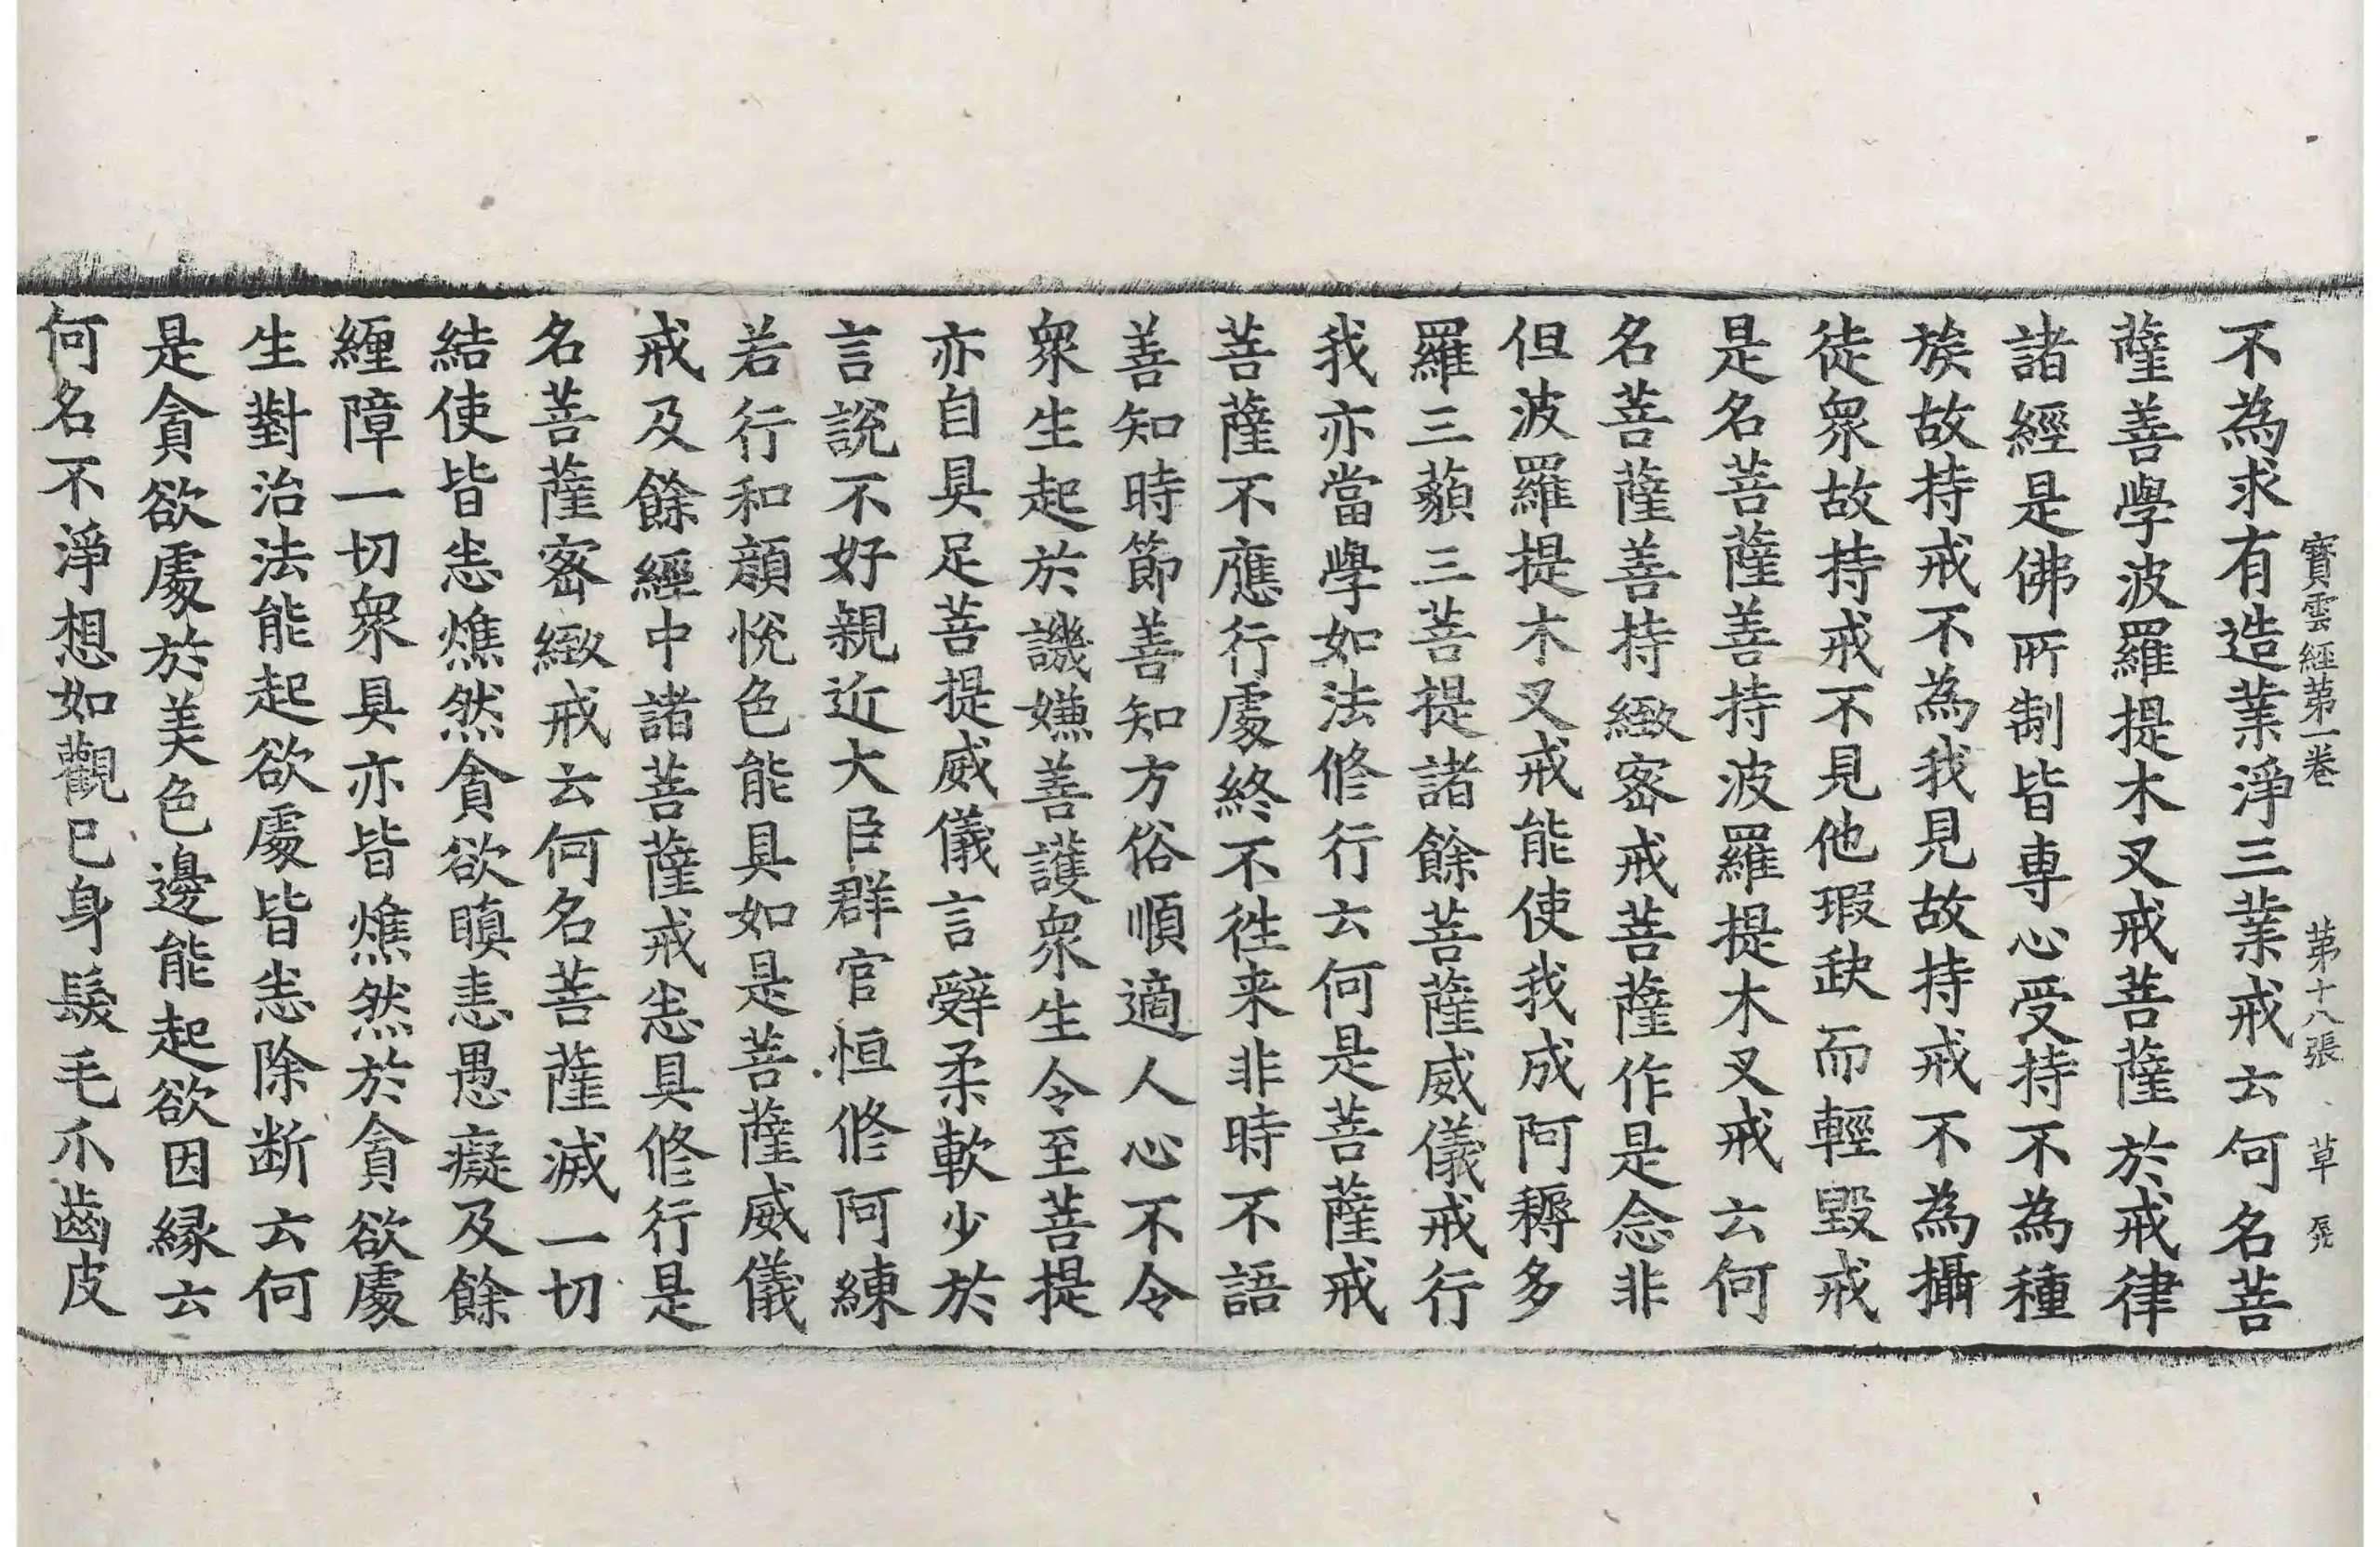 寳雲經苐一卷 苐十八張 草
不為求有造業淨三業戒云何名菩
薩善學波羅提木叉戒菩薩於戒律
諸經是佛所制皆專心受持不為種
族故持戒不為我見故持戒不為攝
徒衆故持戒不見他瑕缺而輕毀戒
是名菩薩善持波羅提木叉戒云何
名菩薩善持緻密戒菩薩作是念非
但波羅提木叉戒能使我成阿耨多
羅三藐三菩提諸餘菩薩威儀戒行
我亦當學如法修行云何是菩薩戒
菩薩不應行處終不徃来非時不語
善知時節善知方俗順適人心不令
衆生起於譏嫌善護衆生令至菩提
亦自具足菩提威儀言辭柔軟少於
言說不好親近大臣群官恒修阿練
若行和顔悅色能具如是菩薩威儀
戒及餘經中諸菩薩戒悉具修行是
名菩薩密緻戒云何名菩薩滅一切
結使皆悉燋然貪欲瞋恚愚癡及餘
纏障一切衆具亦皆燋然於貪欲處
生對治法能起欲處皆悉除断云何
是貪欲處於美色邊能起欲因縁云
何名不淨想如觀己身髮毛爪齒皮